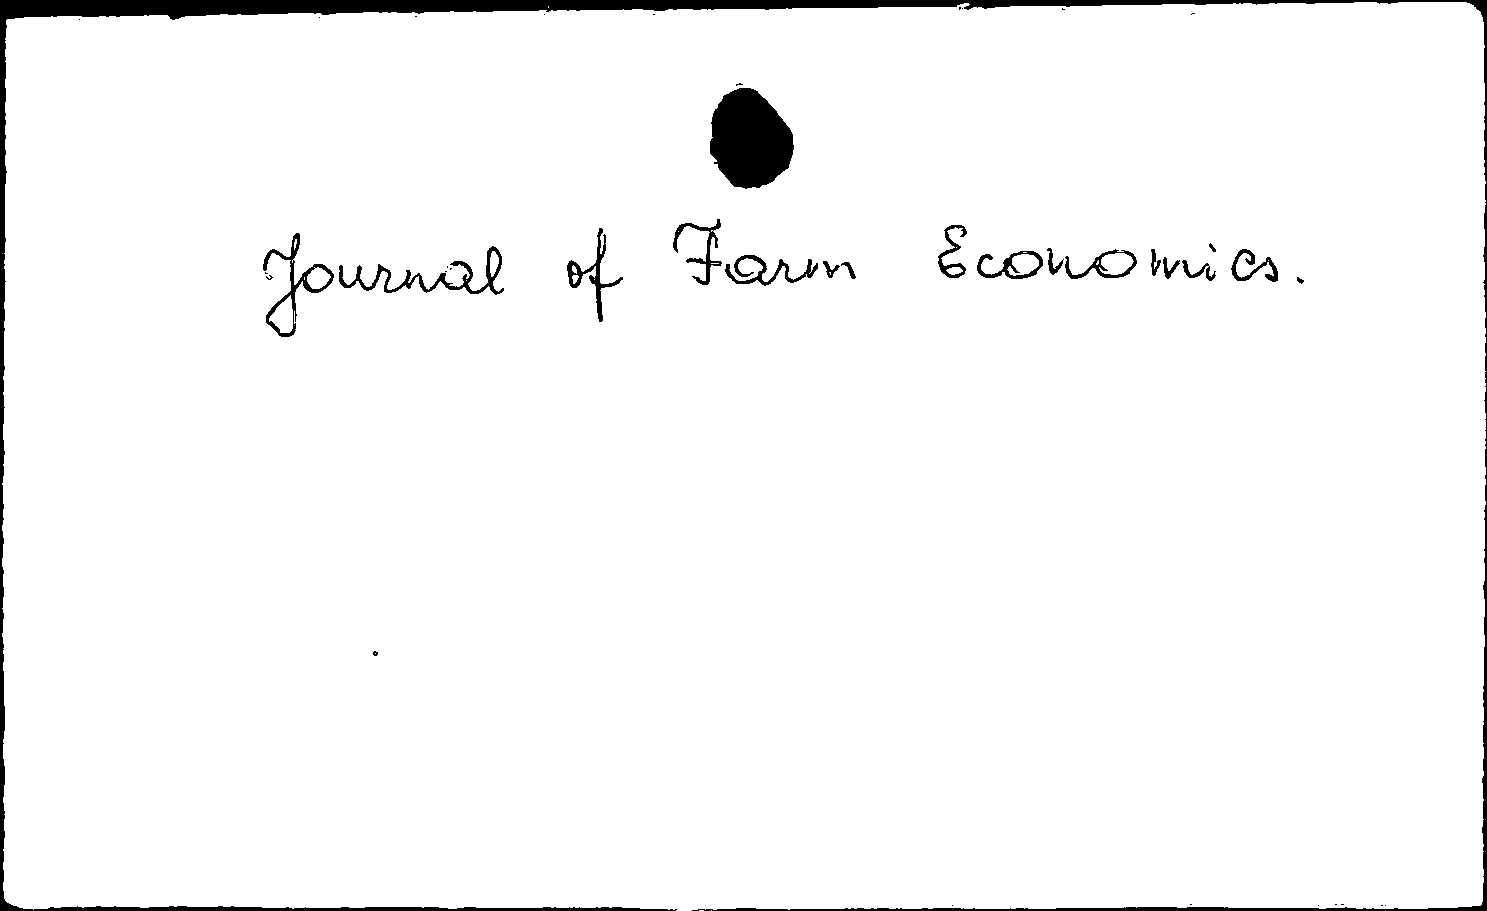 Journal of Farm Economics.